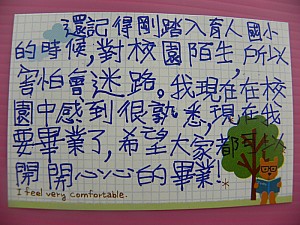 還記得剛踏入育人國小
的時候,對校園陌生,所以
害怕會迷路。我現在在校
園中感到很熟悉,現在我
要畢業了,希望大家都可以
開開心心的畢業!
I feel very comfortable.